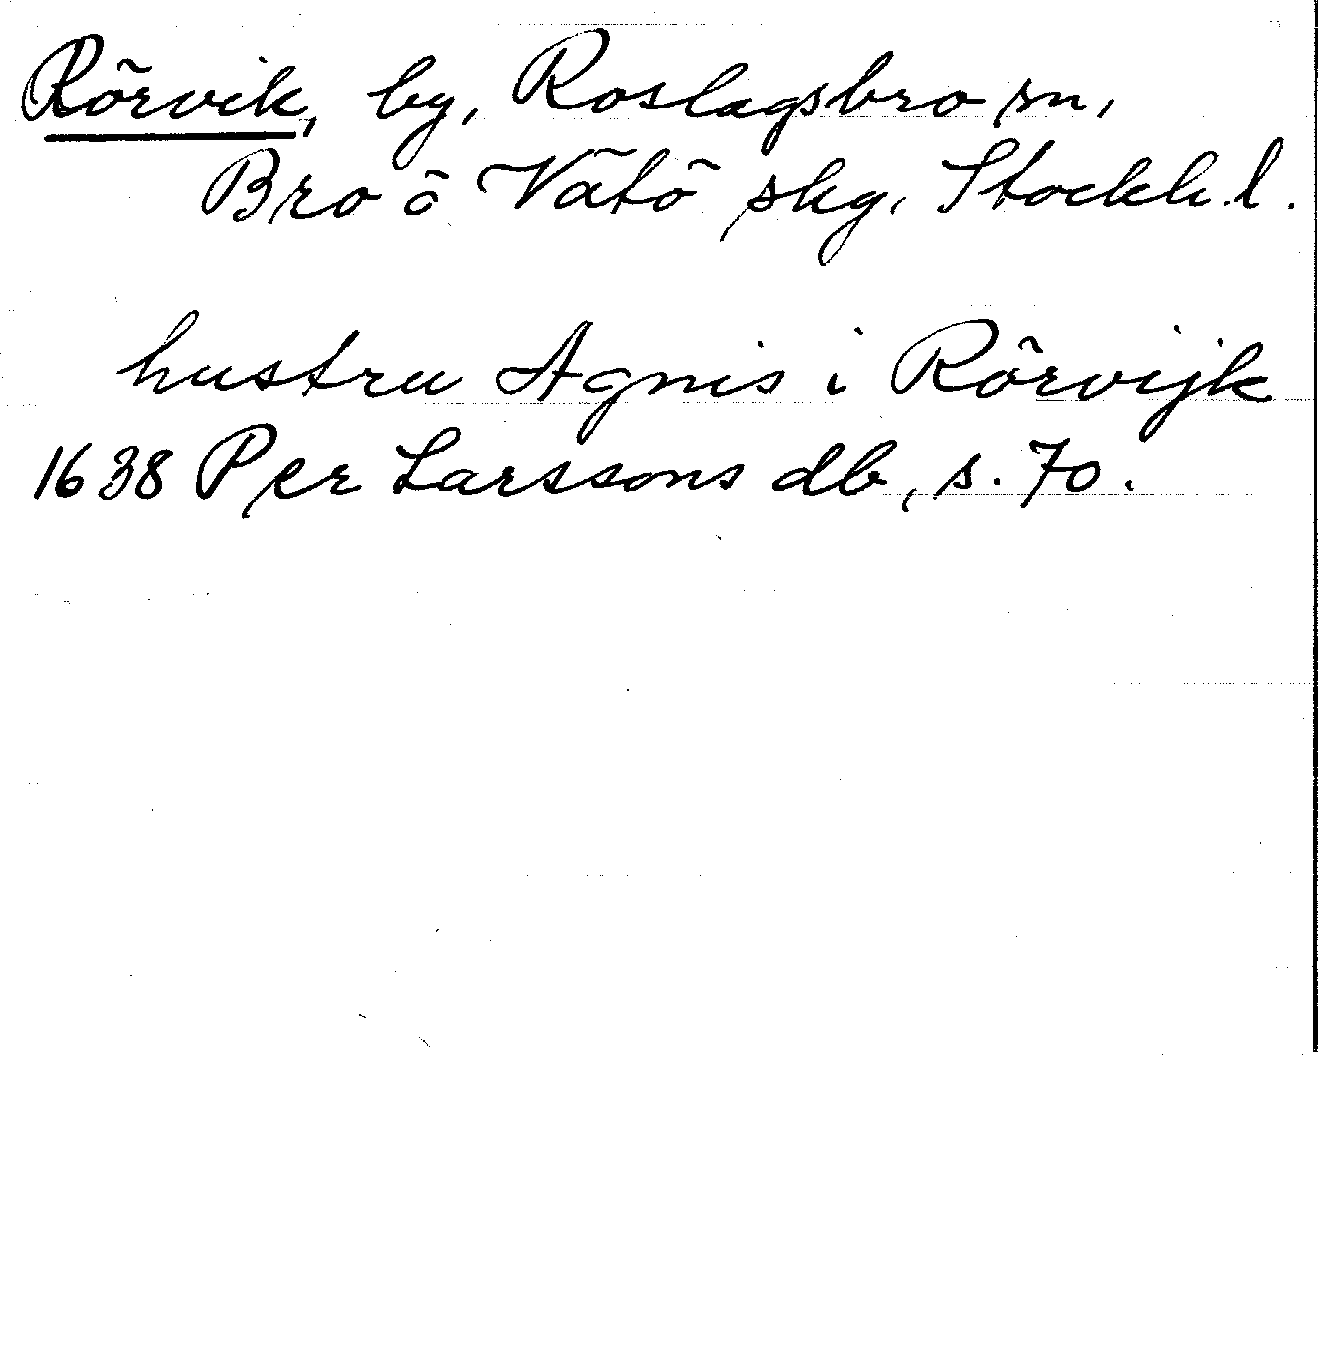 Rörvik, by, Roslagsbro sn,
Bro o Vätö skg, Stockh.l.
hustru Agnis i Rörvijk
1638 Per Larssons db, s. 70.